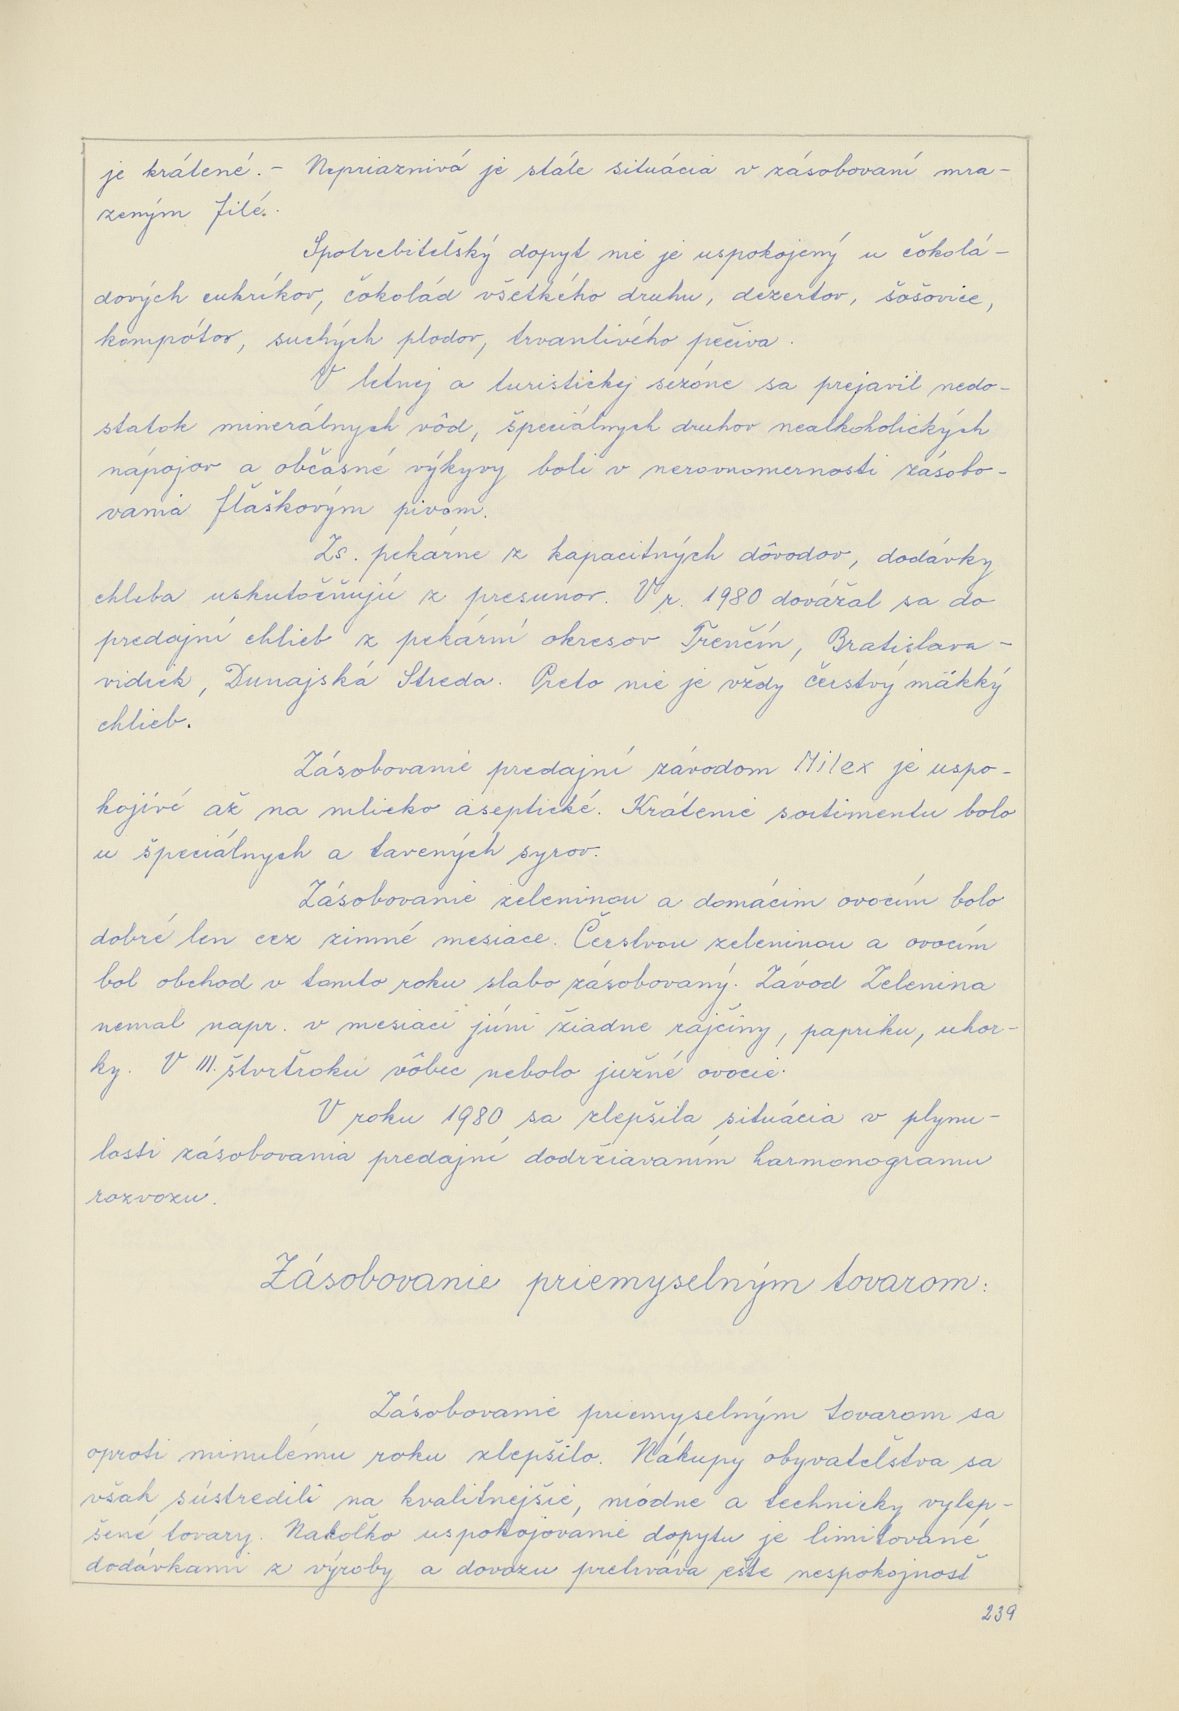 je krátené. - Nepriaznivá je stále situácia v zásobovaní mra-
zeným filé.
Spotrebiteľský dopyt nie je uspokojený u čokolá-
dových cukríkov, čokolád všetkého druhu, dezertov, šošovice,
kompótov, suchých plodov, trvanlivého pečiva.
V letnej a turistickej sezóne sa prejavil nedo-
statok minerálnych vôd, špeciálnych druhov nealkoholických
nápojov a občasné výkyvy boli v nerovnomernosti zásobo-
vania fľaškovým pivom.
Zs. pekárne z kapacitných dôvodov, dodávky
chleba uskutočňujú z presunov. V r. 1980 dovážal sa do
predajní chlieb z pekární okresov Trenčín, Bratislava-
vidiek, Dunajská Streda. Preto nie je vždy čerstvý mäkký
chlieb.
Zásobovanie predajní závodom Milex je uspo-
kojivé až na mlieko aseptické. Krátenie sortimentu bolo
u špeciálnych a tavených syrov.
Zásobovanie zeleninou a domácim ovocím bolo
dobré len cez zimné mesiace. Čerstvou zeleninou a ovocím
bol obchod v tomto roku slabo zásobovaný. Závod Zelenina
nemal napr. v mesiaci júni žiadne rajčiny, papriku, uhor-
ky. V III. štvrťroku vôbec nebolo južné ovocie.
V roku 1980 sa zlepšila situácia v plynu-
losti zásobovania predajní dodržiavaním harmonogramu
rozvozu.
Zásobovanie priemyselným tovarom:
Zásobovanie priemyselným tovarom sa
oproti minulému roku zlepšilo. Nákupy obyvateľstva sa
však sústredili na kvalitnejšie, módne a technicky vylep-
šené tovary. Nakoľko uspokojovanie dopytu je limitované
dodávkami z výroby a dovozu pretrváva ešte nespokojnosť
239